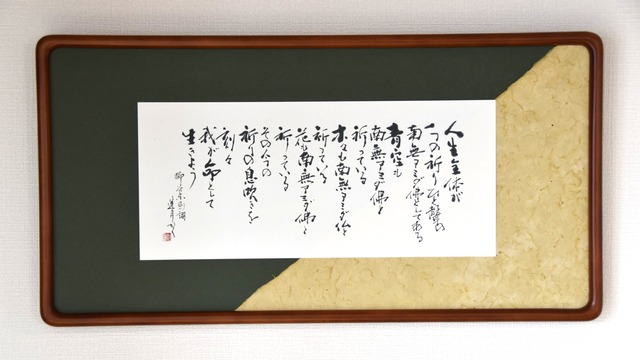 人生全体が
一つの祈り
南無アミダ佛である
青空も
南無アミダ佛と
祈っている
木々も南無アミダ佛と
祈っている
花も南無アミダ佛と
祈っている
その全ての
祈りの息吹を
刻々
我が命として
生きよう